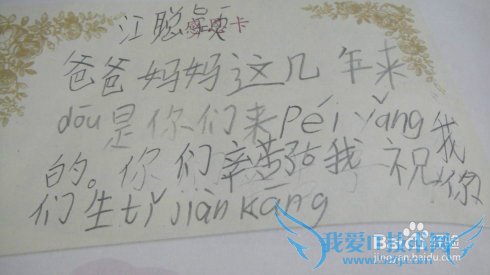 江聪 卡
爸爸妈妈这几年来
dōu是你们来péi yǎng我
的。你们辛苦 我 祝你
们生tǐ jiàn kāng
Baidu 经验
jingyan.baidu.com